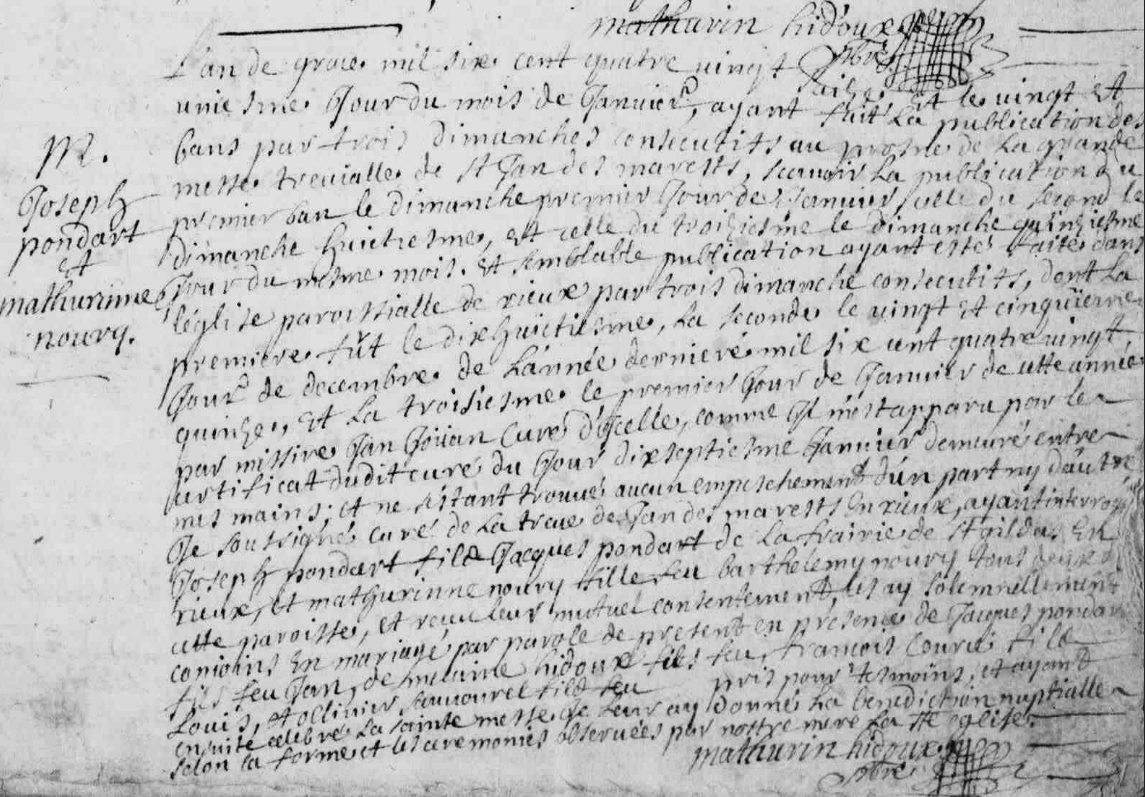 mathurin hidoux
pbre
L'an de grace mil six cent quatre vingt saize et le vingt et
uniesme Jour du mois de Janvier, ayant fait la publication des
bans par trois dimanches consecutifs au prosne de la grande
messe trevialle de st Jan des marests, scavoir la publication du
premier ban le dimanche premier Jour de Janvier, celle du second le
dimanche huictiesme, et celle du troisiesme le dimanche quinziesme
Jour du mesme mois. et semblable publication ayant estée faite dans
l'église paroissialle de rieux par trois dimanche consecutifs, dont la
premiere fût le dixhuictiesme, la seconde le vingt et cinquieme
Jour de decembre de l'année derniere mil six cent quatre vingt
quinze, et la troisiesme le premier Jour de Janvier de cette année
par missire Jan Joüan curé d'icelle, comme il m'est apparu par le
certificat dudit curé du Jour dixseptiesme Janvier demeuré entre
mes mains; et ne s'étant trouvé aucun empeschement d'un part ny d'autre
Je soussigné curé de la treve de Jan des marests en rieux, ayant interrogé
Joseph pondart fils Jacques pondart de la frairie de st Gildas en
rieux, et mathurinne noury fille feu barthelemy noury tous deux de
cette paroisse, et receu leur mutuel consentement, les ay solemnellement
conioins en mariage par parole de present en presence de Jacques pondart
fils feu Jan, de melaine hidoux fils feu, francois couriê fils
Louis, et ollivier sauvourel fils feu pris pour tesmoins, et ayant
ensuite celebré la sainte messe Je leur ay donné la benediction nuptialle
selon la forme et les ceremonies observées par nostre mere la ste eglise.
mathurin hidoux
pbre
M.
Joseph
pondart
et
mathurinne
noury.